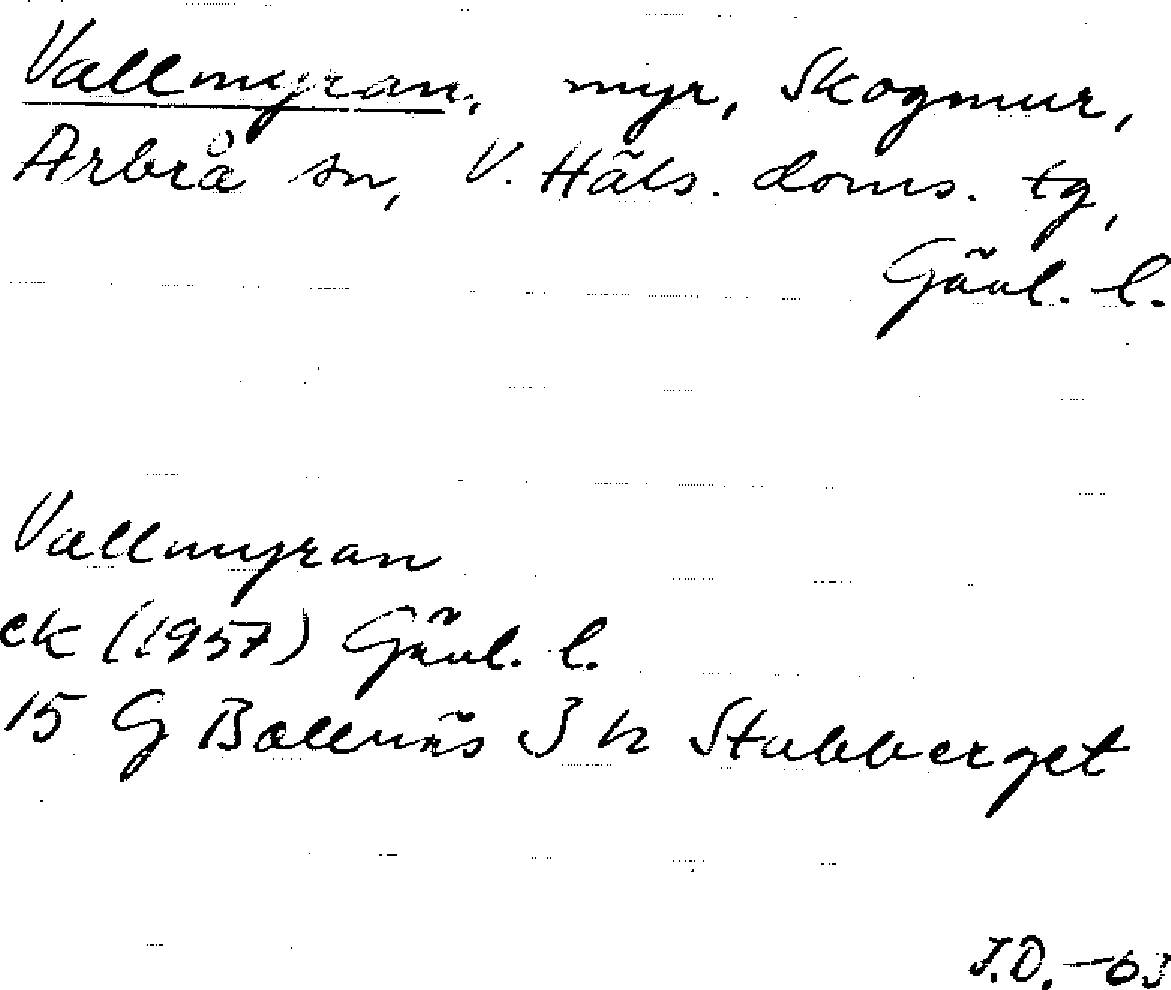 Vallmyran, myr, Skogmur,
Arbrå sn, V. Häls. doms. tg,
Gävl. l.
Vallmyran
ek (1957) Gävl. l.
15 G Bollnäs 3 h Stubberget
J.D. -63